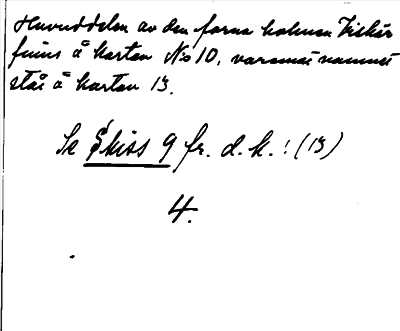 Huvuddelen av den forna holmen Viskär
finns å kartan No 10, varemot namnet
står å kartan 13.
Se Skiss 9 fr. d. k.! (13)
4.